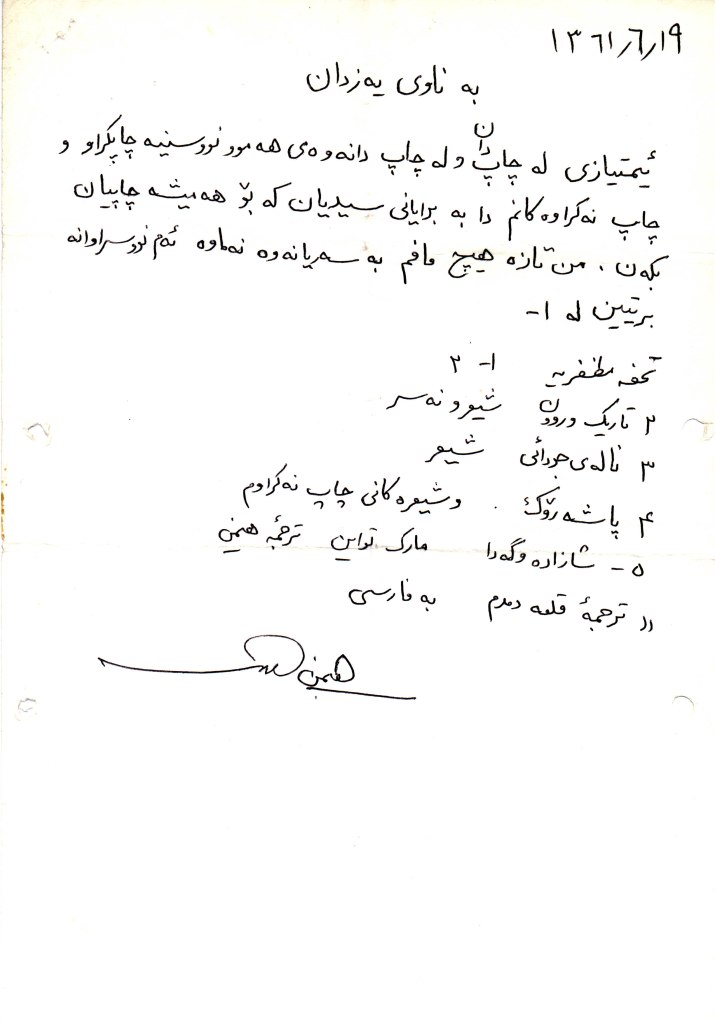 ١٣٦١/٦/١٩
به ناوی یه زدان
ئیمتیازی له چاپ دان و له چاپ دانه وه ی هه موو نووسنیه چاپکراو و
چاپ نه کراوه کانم دا به برایانی سیدیان که بۆ هه میشه چاپیان
بکه ن . من تازه هیچ مافم به سه ریانه وه نه ماوه ئه م نووسراوانه
بریتین له ١-
تحفه مظفریه ١- ٢
٢ تاریک و روون شیعر و نه سر
٣ ناله ی جودائی شیعر
۴ پاشه رۆک . و شیعره کانی چاپ نه کراوم
٥- شازاده و گه دا مارک تواین ترجمهٔ هیمن
١١ ترجمهٔ قلعه دمدم به فارسی
هیمن